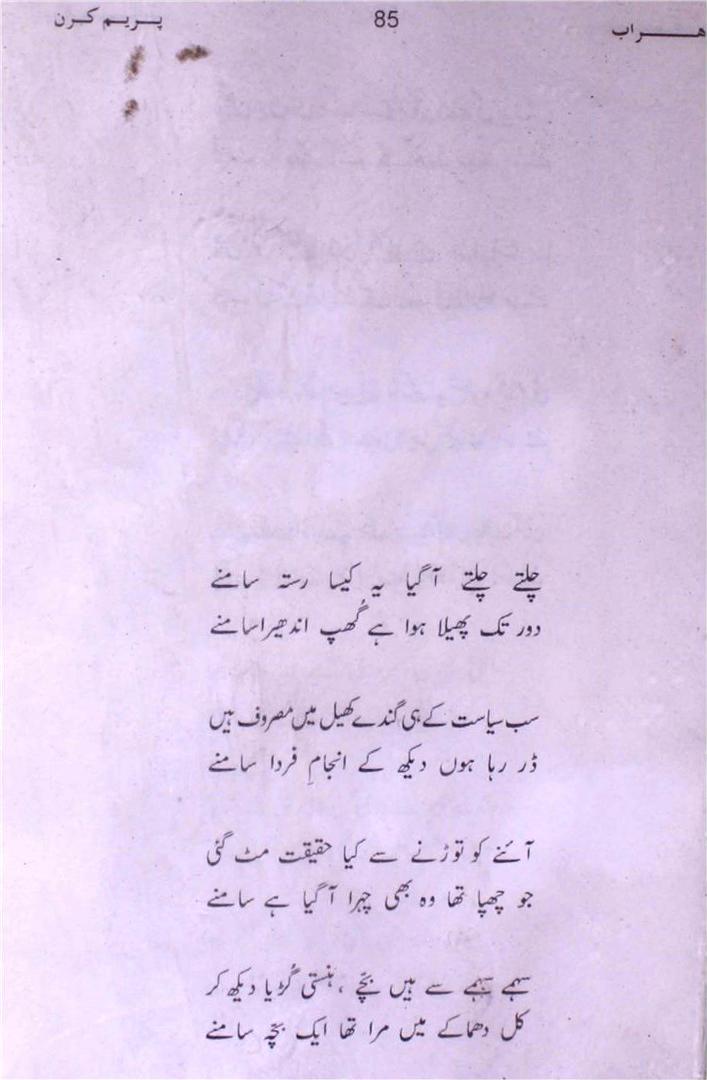 ھراب 85 پریم کرن
چلتے چلتے آگیا یہ کیسا رستہ سامنے
دور تک پھیلا ہوا ہے گُھپ اندھیرا سامنے
سب سیاست کے ہی گندے کھیل میں مصروف ہیں
ڈر رہا ہوں دیکھ کے انجامِ فردا سامنے
آئنے کو توڑنے سے کیا حقیقت مٹ گئی
جو چھپا تھا وہ بھی چہرا آگیا ہے سامنے
سہمے سہمے سے ہیں بچّے ، ہنستی گُڑیا دیکھ کر
کل دھماکے میں مرا تھا ایک بچّہ سامنے